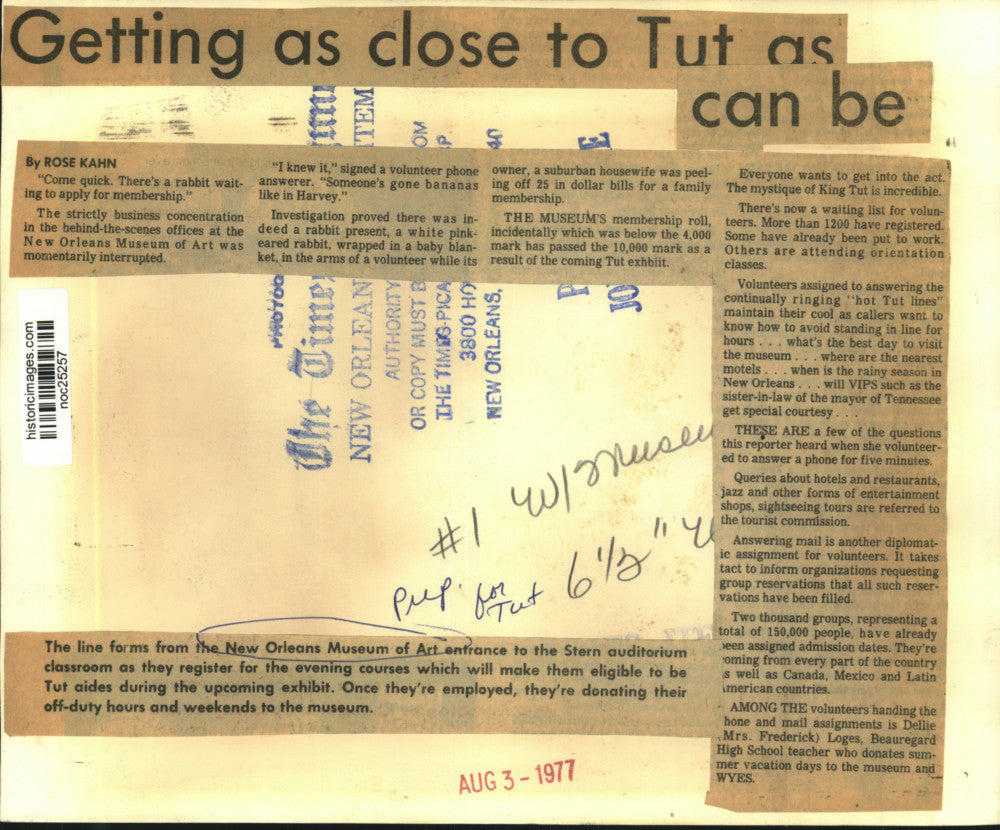 Getting as close to Tut as
can be
By ROSE KAHN
"Come quick. There's a rabbit wait-
ing to apply for membership."
The strictly business concentration
in the behind-the-scenes offices at the
New Orleans Museum of Art was
momentarily interrupted.
"I knew it," signed a volunteer phone
answerer. "Someone's gone bananas
like in Harvey."
Investigation proved there was in-
deed a rabbit present, a white pink-
eared rabbit, wrapped in a baby blan-
ket, in the arms of a volunteer while its
owner, a suburban housewife was peel-
ing off 25 in dollar bills for a family
membership.
THE MUSEUM'S membership roll,
incidentally which was below the 4,000
mark has passed the 10,000 mark as a
result of the coming Tut exhbiit.
Everyone wants to get into the act.
The mystique of King Tut is incredible.
There's now a waiting list for volun-
teers. More than 1200 have registered.
Some have already been put to work.
Others are attending orientation
classes.
Volunteers assigned to answering the
continually ringing "hot Tut lines"
maintain their cool as callers want to
know how to avoid standing in line for
hours . . . what's the best day to visit
the museum . . . where are the nearest
motels . . . when is the rainy season in
New Orleans . . . will VIPS such as the
sister-in-law of the mayor of Tennessee
get special courtesy . . .
THESE ARE a few of the questions
this reporter heard when she volunteer-
ed to answer a phone for five minutes.
Queries about hotels and restaurants,
jazz and other forms of entertainment
shops, sightseeing tours are referred to
the tourist commission.
Answering mail is another diplomat-
ic assignment for volunteers. It takes
tact to inform organizations requesting
group reservations that all such reser-
vations have been filled.
Two thousand groups, representing a
total of 150,000 people, have already
been assigned admission dates. They're
coming from every part of the country
as well as Canada, Mexico and Latin
American countries.
AMONG THE volunteers handing the
hone and mail assignments is Dellie
(Mrs. Frederick) Loges, Beauregard
High School teacher who donates sum-
mer vacation days to the museum and
WYES.
historicimages.com
noc25257
The Times
NEW ORLEAN
AUTHORITY
OR COPY MUST B
THE TIMES-PICA
3800 HO
NEW ORLEANS,
40
ITEM
#1
6 1/2"
Prep. for Tut
The line forms from the New Orleans Museum of Art entrance to the Stern auditorium
classroom as they register for the evening courses which will make them eligible to be
Tut aides during the upcoming exhibit. Once they're employed, they're donating their
off-duty hours and weekends to the museum.
AUG 3 - 1977